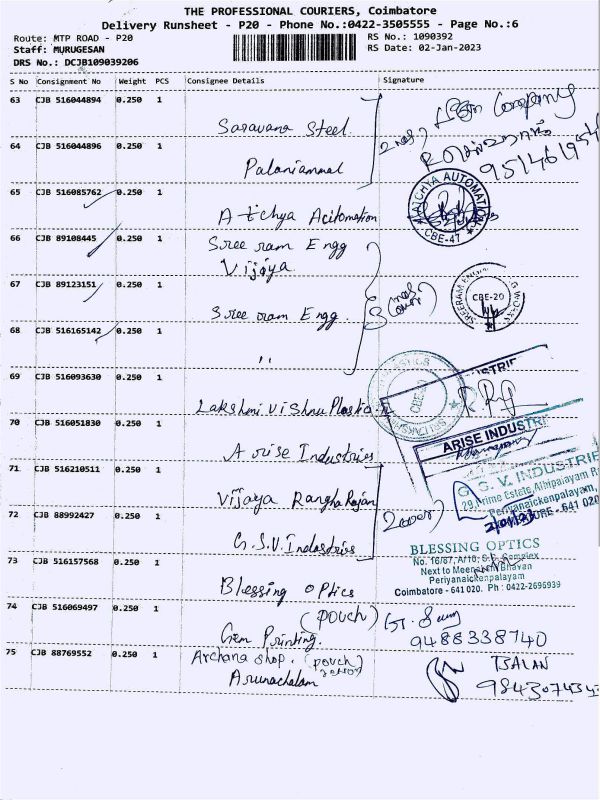 THE PROFESSIONAL COURIERS, Coimbatore
Delivery Runsheet - P20 - Phone No.:0422-3505555 - Page No.:6
Route: MTP ROAD - P20
RS No.: 1090392
Staff: MURUGESAN
RS Date: 02-Jan-2023
DRS No.: DCJB109039206
S No Consignment No Weight PCS Consignee Details Signature
63 CJB 516044894 0.250 1
Saravana Steel
64 CJB 516044896 0.250 1
Palaniammal
65 CJB 516085762 0.250 1
Atchya Acitomation
AUTOMATION
CBE-47
66 CJB 89108445 0.250 1
Sree ram Engg
Vijaya
67 CJB 89123151 0.250 1
Sree ram Engg.
SREERAM
CBE-20
68 CJB 516165142 0.250 1
"
69 CJB 516093630 0.250 1
Lakshmi Vishnu Plastic
70 CJB 516051830 0.250 1
Arise Industries
ARISE INDUSTRI
71 CJB 516210511 0.250 1
Vijaya Rangha Rajan
G. S. V. INDUSTRIE
29, Prime Estate, Athipalayam R
Periyanaickenpalayam,
- 641 020
72 CJB 88992427 0.250 1
G.S.V. Industries
BLESSING OPTICS
No. 16/67, A/10, S.B. Complex
Next to Meenakshi Bhavan
Periyanaickenpalayam
Coimbatore - 641 020. Ph : 0422-2696939
73 CJB 516157568 0.250 1
Blessing optics
74 CJB 516069497 0.250 1
(pouch)
Gem Printing
9488338740
75 CJB 88769552 0.250 1
Archana shop. (pouch)
Arunachalam
BALAN